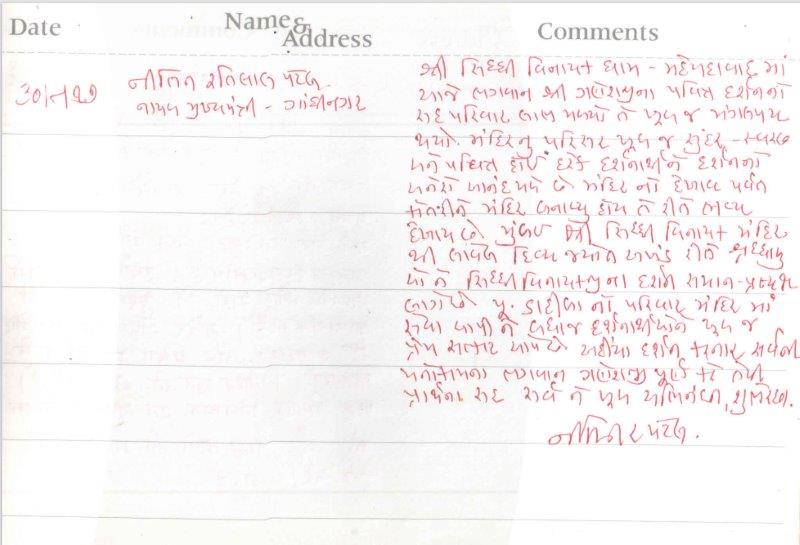 Date Name & Address Comments
નીતિન રતિલાલ પટેલ
નાયબ મુખ્યમંત્રી - ગાંધીનગર
શ્રી સિધ્ધી વિનાયક ધામ - મહેમદાવાદ માં
આજે ભગવાન શ્રી ગણેશજીના પવિત્ર દર્શનનો
સહ પરિવાર લાભ મળ્યો તે ખૂબ જ મંગલમય
થયો. મંદિરનુ પરિસર ખૂબ જ સુંદર - સ્વચ્છ
અને પવિત્ર હોઈ દરેક દર્શનાર્થીને દર્શનનો
અનેરો આનંદ મળે છે મંદિર નો દેખાવ પર્વત
કોતરીને મંદિર બનાવ્યુ હોય તે રીતે ભવ્ય
દેખાય છે. મુંબઇ શ્રી સિધ્ધી વિનાયક મંદિર
થી લાવેલ દિવ્ય જ્યોત અખંડ રીતે શ્રધ્ધાળુ
ઓ ને સિધ્ધી વિનાયકજીના દર્શન સમાન - પ્રત્યક્ષ
લાગે છે. પુ. દાદીબા નો પરિવાર મંદિર માં
સેવા આપી ને બધાજ દર્શનાર્થીઓને ખૂબ જ
પ્રેમ સત્કાર આપે છે અહીંયા દર્શન કરનાર સર્વેની
મનોકામના ભગવાન ગણેશજી પૂર્ણ કરે તેવી
પ્રાર્થના સહ સર્વે ને ખૂબ અભિનંદન, શુભેચ્છા.
નીતિન ર પટેલ.